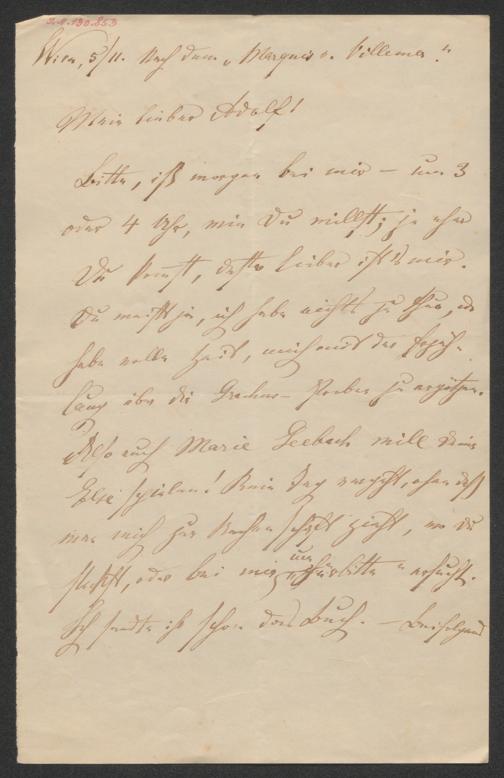 I.N. 130.853
Wien, 5/11. Nach dem „Marquis v. Villemer."
Mein lieber Adolf!
Bitte, iß morgen bei mir – um 3
oder 4 Uhr, wie Du willst; je eher
Du kommst, desto lieber ist's mir.
Du weißt ja, ich habe nichts zu thun, u.
habe volle Zeit, mich mit der Erzäh-
lung über die Gracchus-Proben zu ergötzen.
Also auch Marie Seebach will Deine
Else spielen! Kein Tag vergeht, ohne daß
man mich zur Rechenschaft zieht, wo Du
steckst, oder bei mir um „Fürbitte" ersucht.
Ich sandte ihr schon das Buch. – Beifolgend